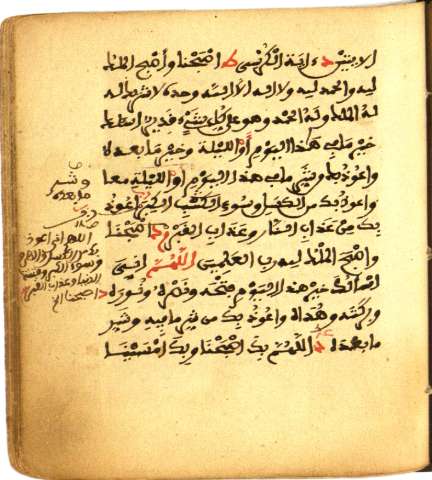 الايتين ءاية الكرسى اصبحنا وأصبح الملك
لله والحمد لله ولا اله الا الله وحده لا شريك له
له الملك وله الحمد وهو على كل شىء قدير اسئلك
خير ما في هذا اليوم أو الليلة وخير ما بعده
واعوذ بك وشر ما في هذا اليوم أو الليلة معا
واعوذ بك من الكسل وسوء الكبر اعوذ
بك من عذاب النار وعذاب القبر اصبحنا
واصبح الملك لله رب العلمين اللهم انى
اسألك خير هذا اليوم فتحه ونصره ونوره
وبركته وهداه واعوذ بك من شر ما فيه وشر
ما بعده اللهم بك اصبحنا وبك امسينا
وشر
ما بعده
اللهم انى اعوذ
بك من الكسل
وسوء الكبر وفتنة
الدنيا وعذاب القبر
اصبحنا الخ